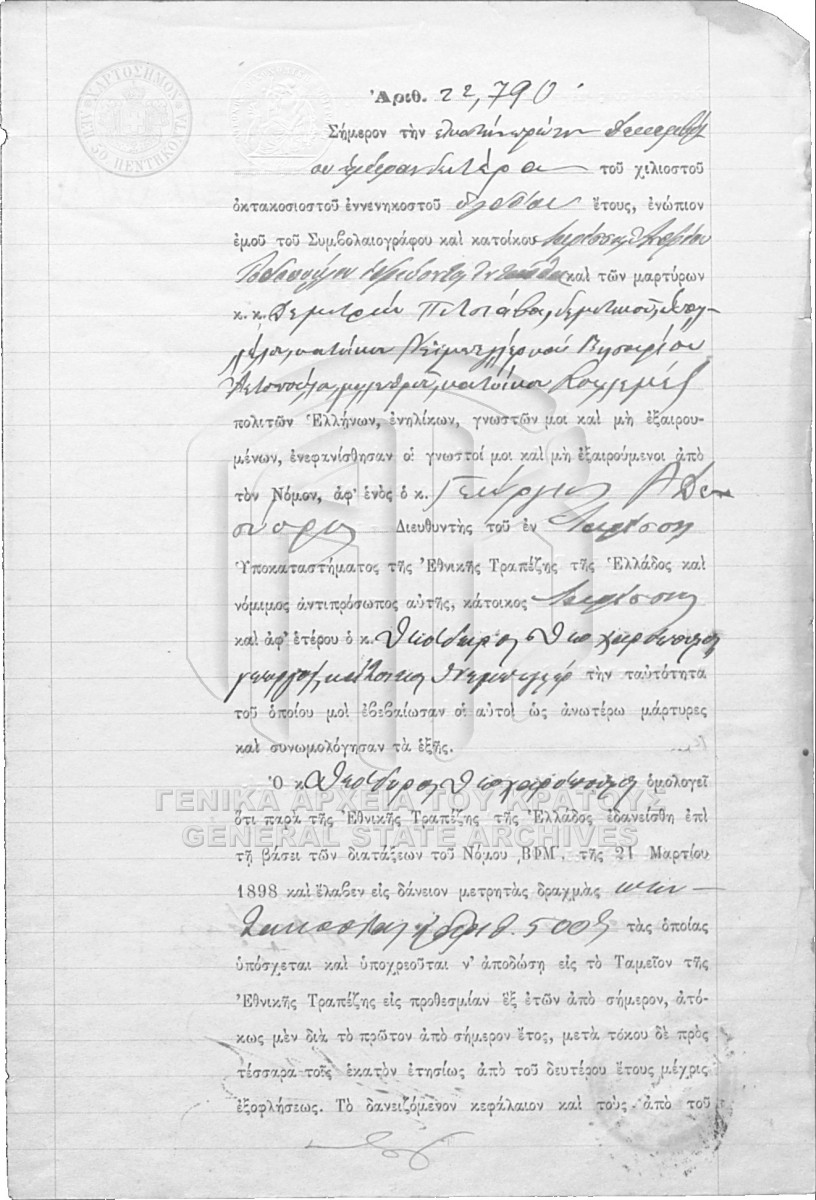 ΧΑΡΤΟΣΗΜΟΝ
50 ΠΕΝΤΗΚΟ
Ἀριθ. 22,790
Σήμερον τὴν εἰκοστὴν πρώτην
Δευτέρα τοῦ χιλιοστοῦ
ὀκτακοσιοστοῦ ἐννενηκοστοῦ ὀγδόου ἔτους, ἐνώπιον
ἐμοῦ τοῦ Συμβολαιογράφου καὶ κατοίκου Λαρίσσης
καὶ τῶν μαρτύρων
κ. κ. Δημητρίου
κατοίκου
κατοίκου
πολιτῶν Ἑλλήνων, ἐνηλίκων, γνωστῶν μοι καὶ μὴ ἐξαιρου-
μένων, ἐνεφανίσθησαν οἱ γνωστοί μοι καὶ μὴ ἐξαιρούμενοι ἀπὸ
τὸν Νόμον, ἀφ' ἑνὸς ὁ κ. Γεώργιος
Διευθυντὴς τοῦ ἐν Λαρίσσῃ
Ὑποκαταστήματος τῆς Ἐθνικῆς Τραπέζης τῆς Ἑλλάδος καὶ
νόμιμος ἀντιπρόσωπος αὐτῆς, κάτοικος Λαρίσσης
καὶ ἀφ' ἑτέρου ὁ κ. Θεόδωρος Θεοχαρόπουλος
γεωργός, κάτοικος τὴν ταὐτότητα
τοῦ ὁποίου μοὶ ἐβεβαίωσαν οἱ αὐτοὶ ὡς ἀνωτέρω μάρτυρες
καὶ συνωμολόγησαν τὰ ἑξῆς.
Ὁ κ. Θεόδωρος Θεοχαρόπουλος ὁμολογεῖ
ΓΕΝΙΚΑ ΑΡΧΕΙΑ ΤΟΥ ΚΡΑΤΟΥΣ
ὅτι παρὰ τῆς Ἐθνικῆς Τραπέζης τῆς Ἑλλάδος ἐδανείσθη ἐπὶ
GENERAL STATE ARCHIVES
τῇ βάσει τῶν διατάξεων τοῦ Νόμου ͵ΒΦΜ΄, τῆς 21 Μαρτίου
1898 καὶ ἔλαβεν εἰς δάνειον μετρητὰς δραχμὰς πεν-
τακοσίας ἀριθ. 500 τὰς ὁποίας
ὑπόσχεται καὶ ὑποχρεοῦται ν' ἀποδώσῃ εἰς τὸ Ταμεῖον τῆς
Ἐθνικῆς Τραπέζης εἰς προθεσμίαν ἓξ ἐτῶν ἀπὸ σήμερον, ἀτό-
κως μὲν διὰ τὸ πρῶτον ἀπὸ σήμερον ἔτος, μετὰ τόκου δὲ πρὸς
τέσσαρα τοῖς ἑκατὸν ἐτησίως ἀπὸ τοῦ δευτέρου ἔτους μέχρις
ἐξοφλήσεως. Τὸ δανειζόμενον κεφάλαιον καὶ τοὺς ἀπὸ τοῦ